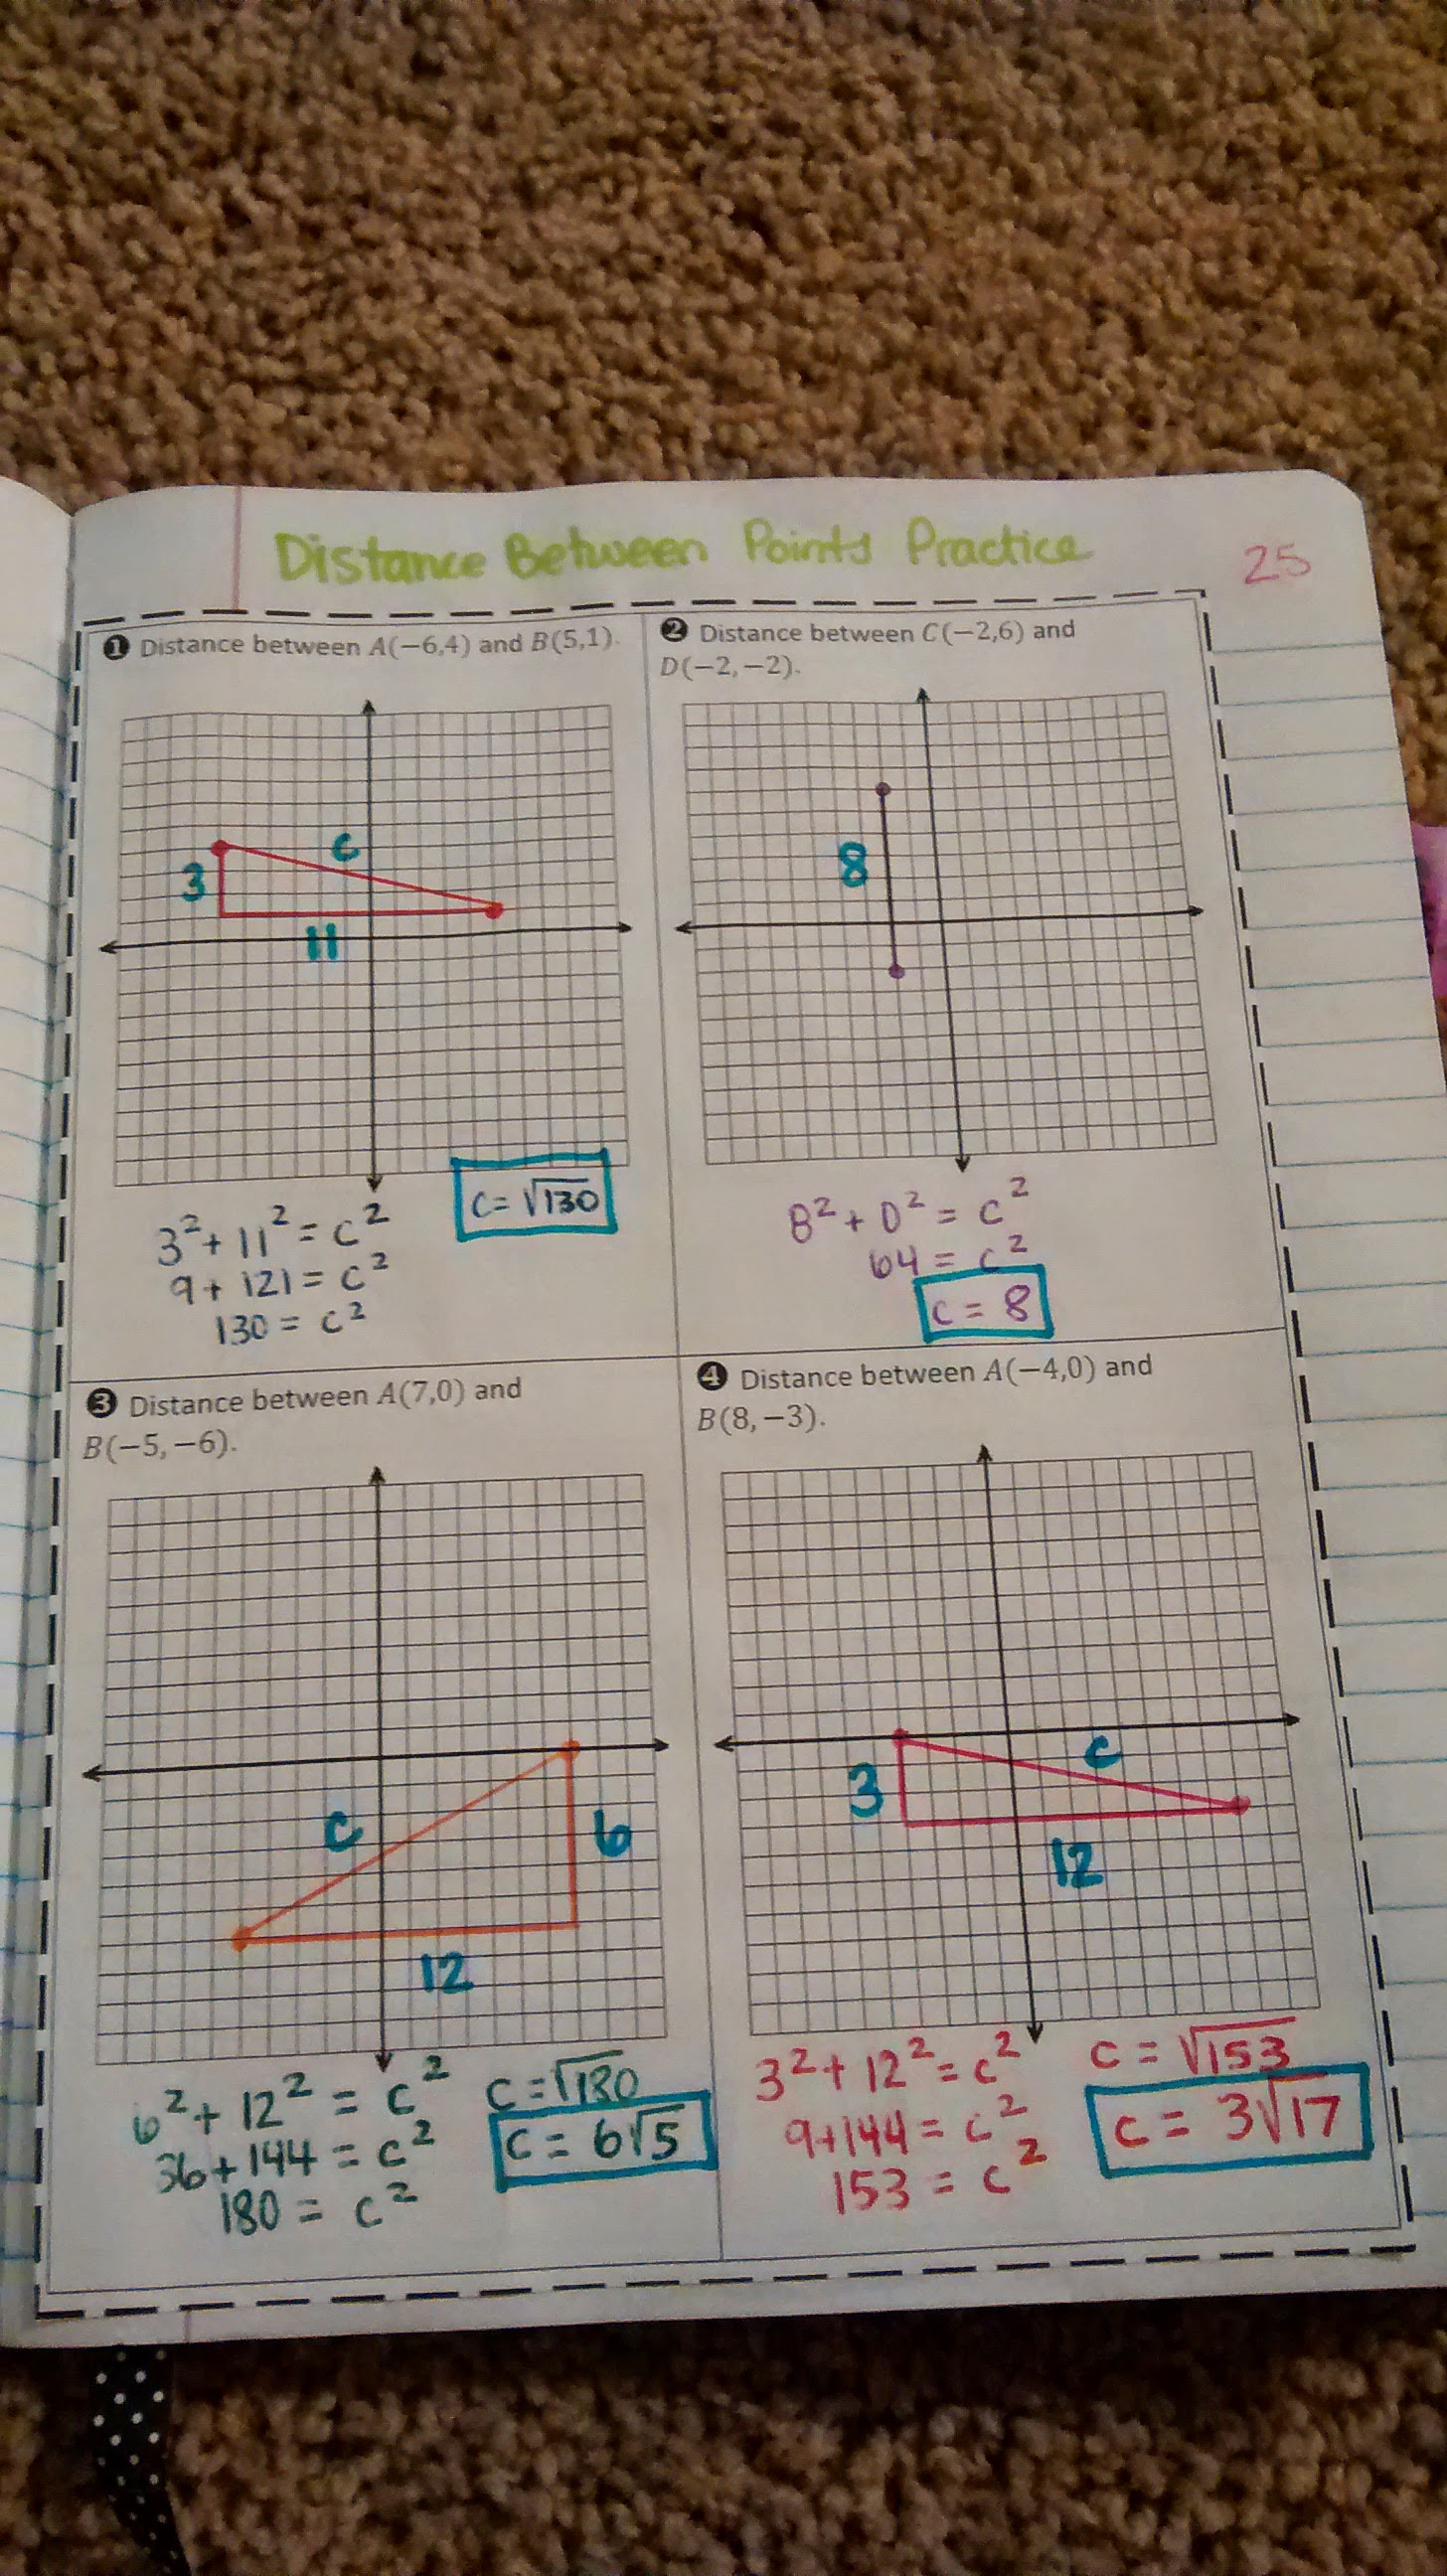 Distance Between Points Practice
25
❶ Distance between A(−6,4) and B(5,1).
3
c
11
3² + 11² = c²
9 + 121 = c²
130 = c²
c = √130
❷ Distance between C(−2,6) and
D(−2,−2).
8
8² + 0² = c²
64 = c²
c = 8
❸ Distance between A(7,0) and
B(−5,−6).
c
6
12
6² + 12² = c²
36 + 144 = c²
180 = c²
c = √180
c = 6√5
❹ Distance between A(−4,0) and
B(8,−3).
c
3
12
3² + 12² = c²
9+144 = c²
153 = c²
c = √153
c = 3√17